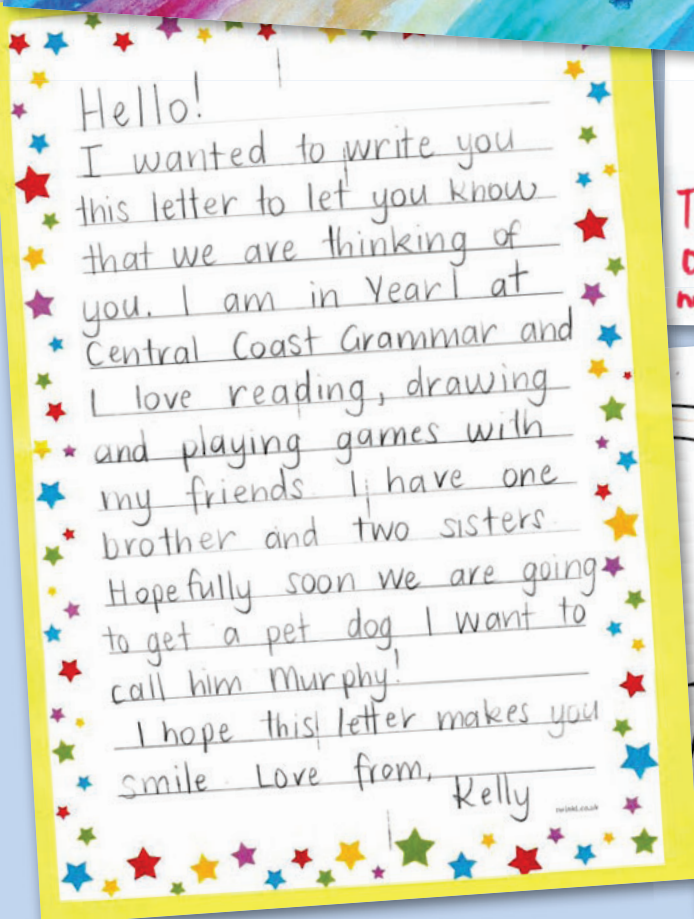 Hello!
I wanted to write you
this letter to let you know
that we are thinking of
you. I am in Year 1 at
Central Coast Grammar and
I love reading, drawing
and playing games with
my friends. I have one
brother and two sisters
Hopefully soon we are going
to get a pet dog I want to
call him Murphy!
I hope this letter makes you
smile. Love from,
Kelly
twinkl.co.uk